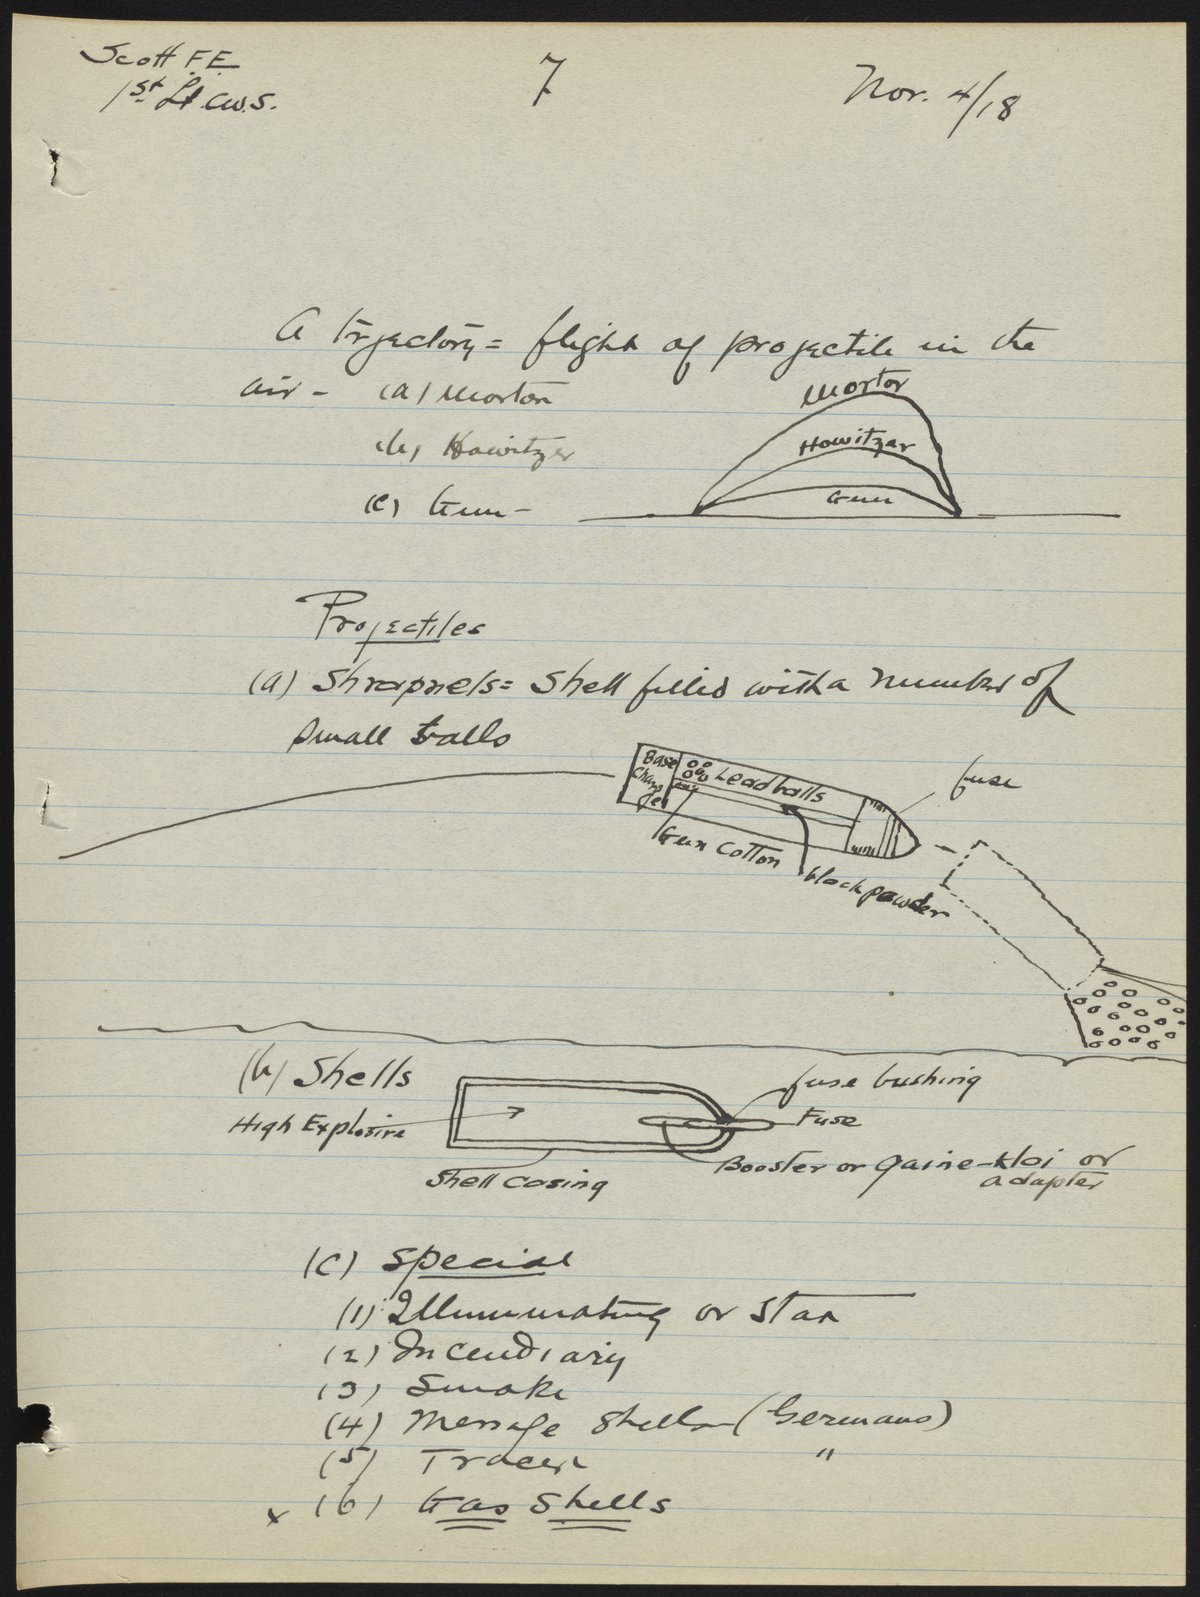 Scott F.E.
1st Lt. C.W.S.
7
Nov. 4/18
A trjectory = flight of projectile in the
air - (a) Mortor
(b) Howitzer
(c) Gun -
Mortor
Howitzer
Gun
Projectiles
(a) Shrapnels = Shell filled with a number of
small balls
Base
Charge
Lead balls
fuse
Gun Cotton
black powder
(b) Shells
High Explosive
Shell casing
fuse bushing
Fuse
Booster or gaine - or
adapter
(c) Special
(1) Illuminating or Star
(2) Incendiary
(3) Smoke
(4) Message Shells - (Germans)
(5) Tracer "
x (6) Gas Shells